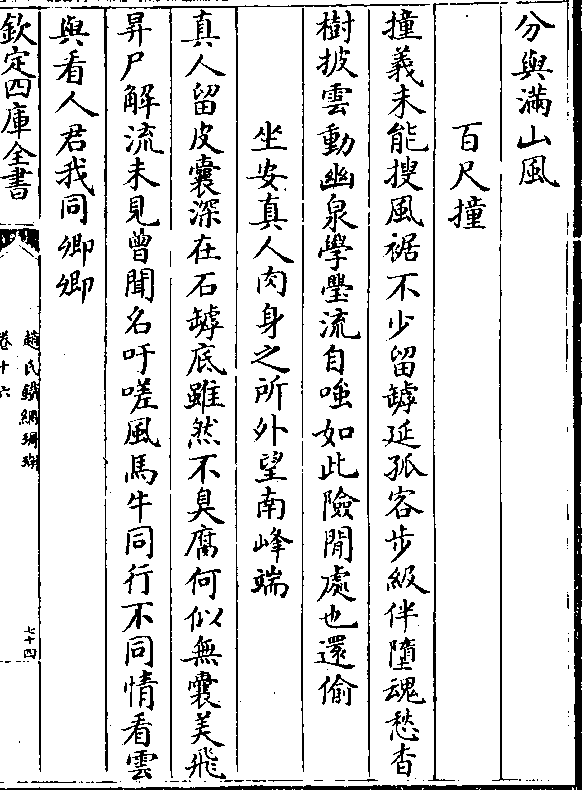 分與滿山風
百尺撞
撞義未能搜風裾不少留罅延孤客步級伴墮魂愁杳
樹披雲動幽泉學壘流自嗤如此險閒處也還偷
坐安真人肉身之所外望南峰端
真人留皮囊深在石罅底雖然不臭腐何似無囊美飛
昇尸解流未見曾聞名吁嗟風馬牛同行不同情看雲
與看人君我同卿卿
欽定四庫全書
趙氏鐵網珊瑚
卷十六
七十四